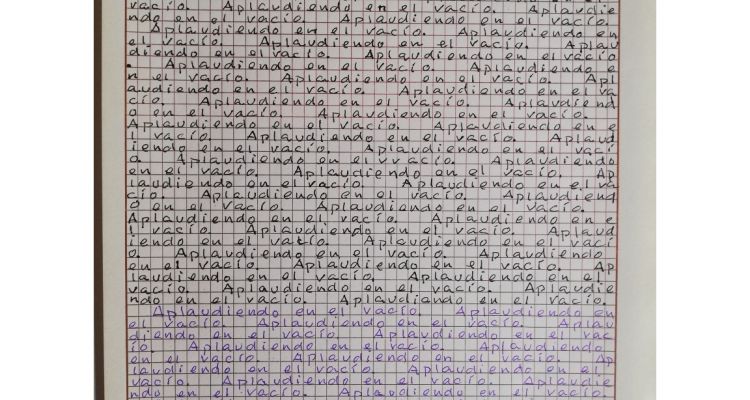 vacío. Aplaudiendo en el vacío. Aplaudie
ndo en el vacío. Aplaudiendo en el vacío.
Aplaudiendo en el vacío. Aplaudiendo en
el vacío. Aplaudiendo en el vacío. Aplau
diendo en el vacío. Aplaudiendo en el vacío
. Aplaudiendo en el vacío. Aplaudiendo e
n el vacío. Aplaudiendo en el vacío. Apl
audiendo en el vacío. Aplaudiendo en el va
cío. Aplaudiendo en el vacío. Aplaudiend
o en el vacío. Aplaudiendo en el vacío.
Aplaudiendo en el vacío. Aplaudiendo en e
l vacío. Aplaudiendo en el vacío. Aplaud
iendo en el vacío. Aplaudiendo en el vací
o. Aplaudiendo en el vvacío. Aplaudiendo
en el vacío. Aplaudiendo en el vacío. Ap
laudiendo en el vacío. Aplaudiendo en el va
cío. Aplaudiendo en el vacío. Aplaudiend
o en el vacío. Aplaudiendo en el vacío.
Aplaudiendo en el vacío. Aplaudiendo en e
l vacío. Aplaudiendo en el vacío. Aplaud
iendo en el vacío. Aplaudiendo en el vací
o. Aplaudiendo en el vacío. Aplaudiendo
en el vacío. Aplaudiendo en el vacío. Ap
laudiendo en el vacío. Aplaudiendo en el
vacío. Aplaudiendo en el vacío. Aplaudie
ndo en el vacío. Aplaudiendo en el vacío.
Aplaudiendo en el vacío. Aplaudiendo en
el vacío. Aplaudiendo en el vacío. Aplau
diendo en el vacío. Aplaudiendo en el vac
ío. Aplaudiendo en el vacío. Aplaudiendo
en el vacío. Aplaudiendo en el vacío. Ap
laudiendo en el vacío. Aplaudiendo en el
vacío. Aplaudiendo en el vacío. Aplaudie
ndo en el vacío. Aplaudiendo en el vacío.